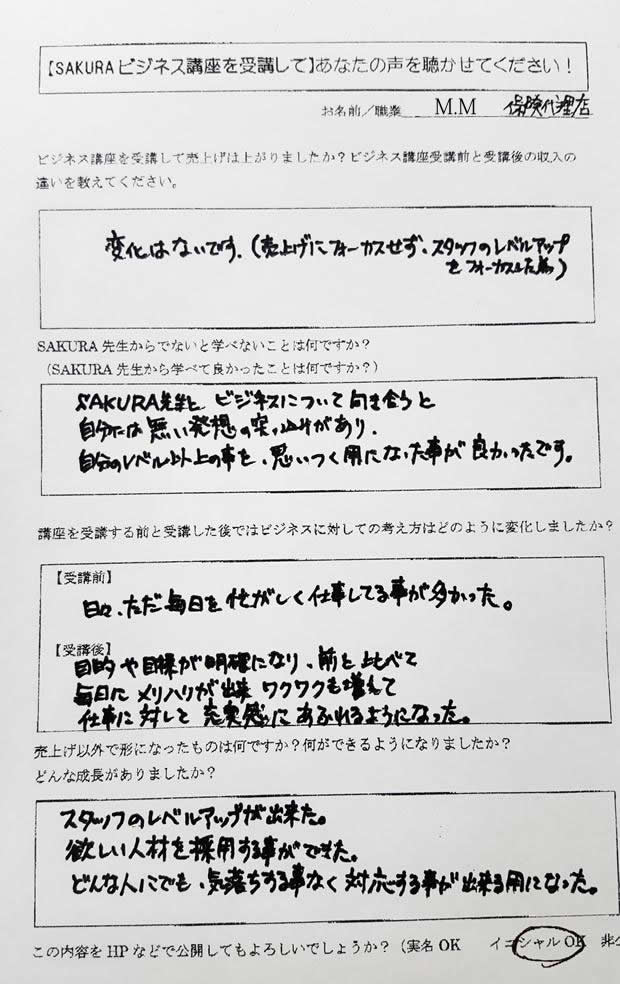 【SAKURA ビジネス講座を受講して】あなたの声を聴かせてください！
お名前／職業 M.M 保険代理店
ビジネス講座を受講して売上げは上がりましたか？ビジネス講座受講前と受講後の収入の
違いを教えてください。
変化はないです。（売上げにフォーカスせず、スタッフのレベルアップ
をフォーカスした為）
SAKURA 先生からでないと学べないことは何ですか？
（SAKURA 先生から学べて良かったことは何ですか？）
SAKURA先生と、ビジネスについて向き合うと
自分には無い発想の突っ込みがあり、
自分のレベル以上の事を、思いつく用になった事が良かったです。
講座を受講する前と受講した後ではビジネスに対しての考え方はどのように変化しましたか？
【受講前】
日々、ただ毎日を忙がしく仕事してる事が多かった。
【受講後】
目的や目標が明確になり、前と比べて
毎日にメリハリが出来 ワクワクも増えて
仕事に対して充実感にあふれるようになった。
売上げ以外で形になったものは何ですか？何ができるようになりましたか？
どんな成長がありましたか？
スタッフのレベルアップが出来た。
欲しい人材を採用する事ができた。
どんな人にでも、気落ちする事なく対応する事が出来る用になった。
この内容を HP などで公開してもよろしいでしょうか？（実名 OK イニシャル OK 非